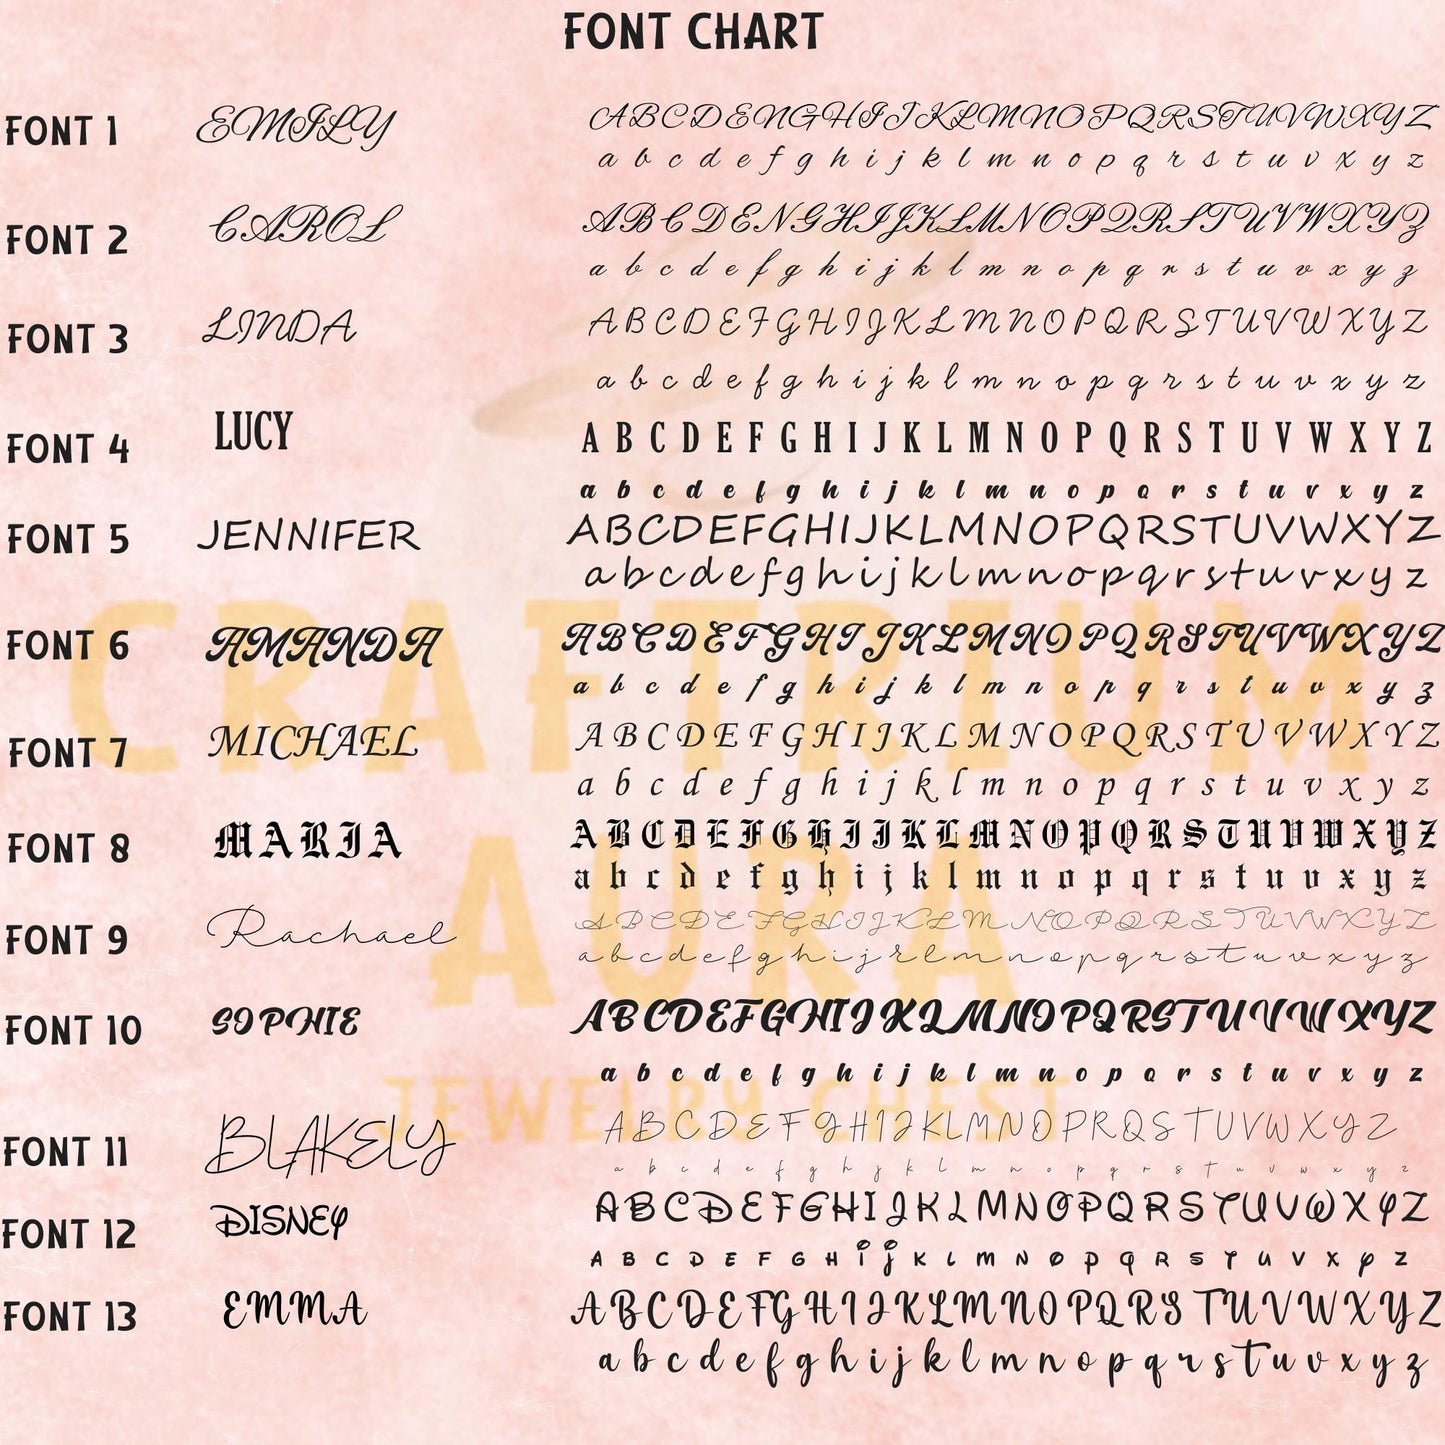 FONT CHART
FONT 1 EMILY ABCDENGHIJKLMNOPQRSTUVWXYZ
a b c d e f g h i j k l m n o p q r s t u v x y z
FONT 2 CAROL ABCDENGHIJKLMNOPQRSTUVWXYZ
a b c d e f g h i j k l m n o p q r s t u v x y z
FONT 3 LINDA ABCDEFGHIJKLMNOPQRSTUVWXYZ
a b c d e f g h i j k l m n o p q r s t u v x y z
FONT 4 LUCY A B C D E F G H I J K L M N O P Q R S T U V W X Y Z
a b c d e f g h i j k l m n o p q r s t u v x y z
FONT 5 JENNIFER ABCDEFGHIJKLMNOPQRSTUVWXYZ
a b c d e f g h i j k l m n o p q r s t u v x y z
FONT 6 AMANDA ABCDEFGHIJKLMNOPQRSTUVWXYZ
a b c d e f g h i j k l m n o p q r s t u v x y z
CRAFTRIUM
FONT 7 MICHAEL A B C D E F G H I J K L M N O P Q R S T U V W X Y Z
a b c d e f g h i j k l m n o p q r s t u v x y z
FONT 8 MARIA A B C D E F G H I J K L M N O P Q R S T U V W X Y Z
a b c d e f g h i j k l m n o p q r s t u v x y z
AURA
FONT 9 Rachael ABCDEFGHIJKLMNOPQRSTUVWXYZ
a b c d e f g h i j k l m n o p q r s t u v x y z
FONT 10 SOPHIE ABCDEFGHIJKLMNOPQRSTUVWXYZ
a b c d e f g h i j k l m n o p q r s t u v x y z
JEWELRY CHEST
FONT 11 BLAKELY ABCDEFGHIJKLMNOPRQSTUVWXYZ
a b c d e f g h j k l m n o p q r s t u v w x y z
FONT 12 DISNEY A B C D E F G H I J K L M N O P Q R S T U V W X Y Z
A B C D E F G H i j K L M N O P Q R S T U V X Y Z
FONT 13 EMMA ABCDEFGHIJKLMNOPQRSTUVWXYZ
a b c d e f g h i j k l m n o p q r s t u v x y z